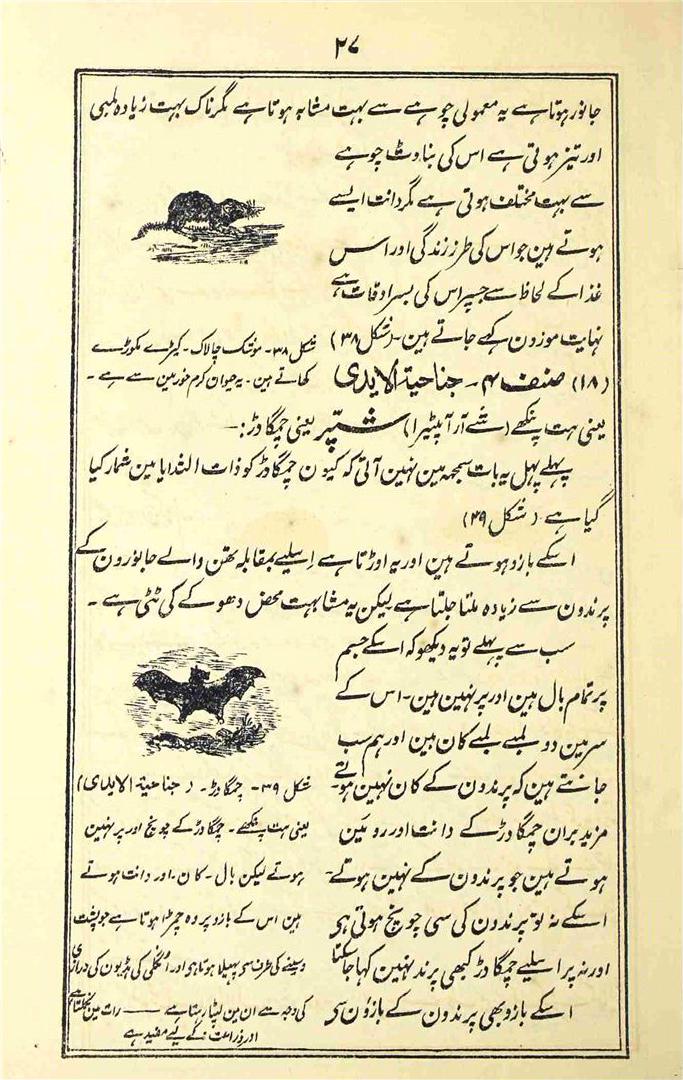 ۲۷
جانور ہوتا ہے یہ معمولی چوہے سے بہت مشابہ ہوتا ہے مگر ناک بہت زیادہ لمبی
اور تیز ہوتی ہے اس کی بناوٹ چوہے
سے بہت مختلف ہوتی ہے مگر دانت ایسے
ہوتے ہین جو اس کی طرز زندگی اور اس
غذا کے لحاظ سے جسپر اس کی بسر اوقات ہے
نہایت موزون کہے جاتے ہین۔ (شکل ۳۸)
شکل ۳۸۔ موشک چالاک۔ کیڑے مکوڑے
کھاتے ہین۔ یہ حیوان کرم خور مین سے ہے۔
(۱۸) صنف ۴۔ جناحیۃ الایدی
یعنی ہت پنکھے (شے آر آپٹیرا) شپّر یعنی چمگادڑ:—
پہلے پہل یہ بات سمجہہ مین نہین آتی کہ کیون چمگادڑ کو ذات الثدایا مین شمار کیا
گیا ہے۔ (شکل ۳۹)
اسکے بازو ہوتے ہین اور یہ اوڑتا ہے اِسلیے بمقابلہ تھن والے جانورون کے
پرندون سے زیادہ ملتا جلتا ہے لیکن یہ مشابہت محض دھوکے کی ٹٹی ہے۔
سب سے پہلے تو یہ دیکھو کہ اسکے جسم
پر تمام بال ہین اور پر نہین ہین۔ اس کے
سر مین دو لمبے لمبے کان ہین اور ہم سب
جانتے ہین کہ پرندون کے کان نہین ہوتے۔
مزید بران چمگادڑ کے دانت اور روئین
ہوتے ہین جو پرندون کے نہین ہوتے۔
اسکے نہ تو پرندون کی سی چونچ ہوتی ہی
اور نہ پر اسلیے چمگادڑ کبھی پرند نہین کہا جا سکتا
اسکے بازو بھی پرندون کے بازون سی
شکل ۳۹۔ چمگادڑ۔ (جناحیۃ الایدی)
یعنی ہت پنکھے۔ چمگادڑ کے چونچ اور پر نہین
ہوتے لیکن بال۔ کان۔ اور دانت ہوتے
ہین اس کے بازو پردہ چمڑا ہوتا ہے جو پشت
و سینے کی طرف سی پہیلا ہوتا ہی اور اُنگلی کی ہڑیون کی درازی
کی وجہ سے ان مین لپٹا رہتا ہے —— رات مین نکلتا ہے
اور زراعت کے لیے مفید ہے